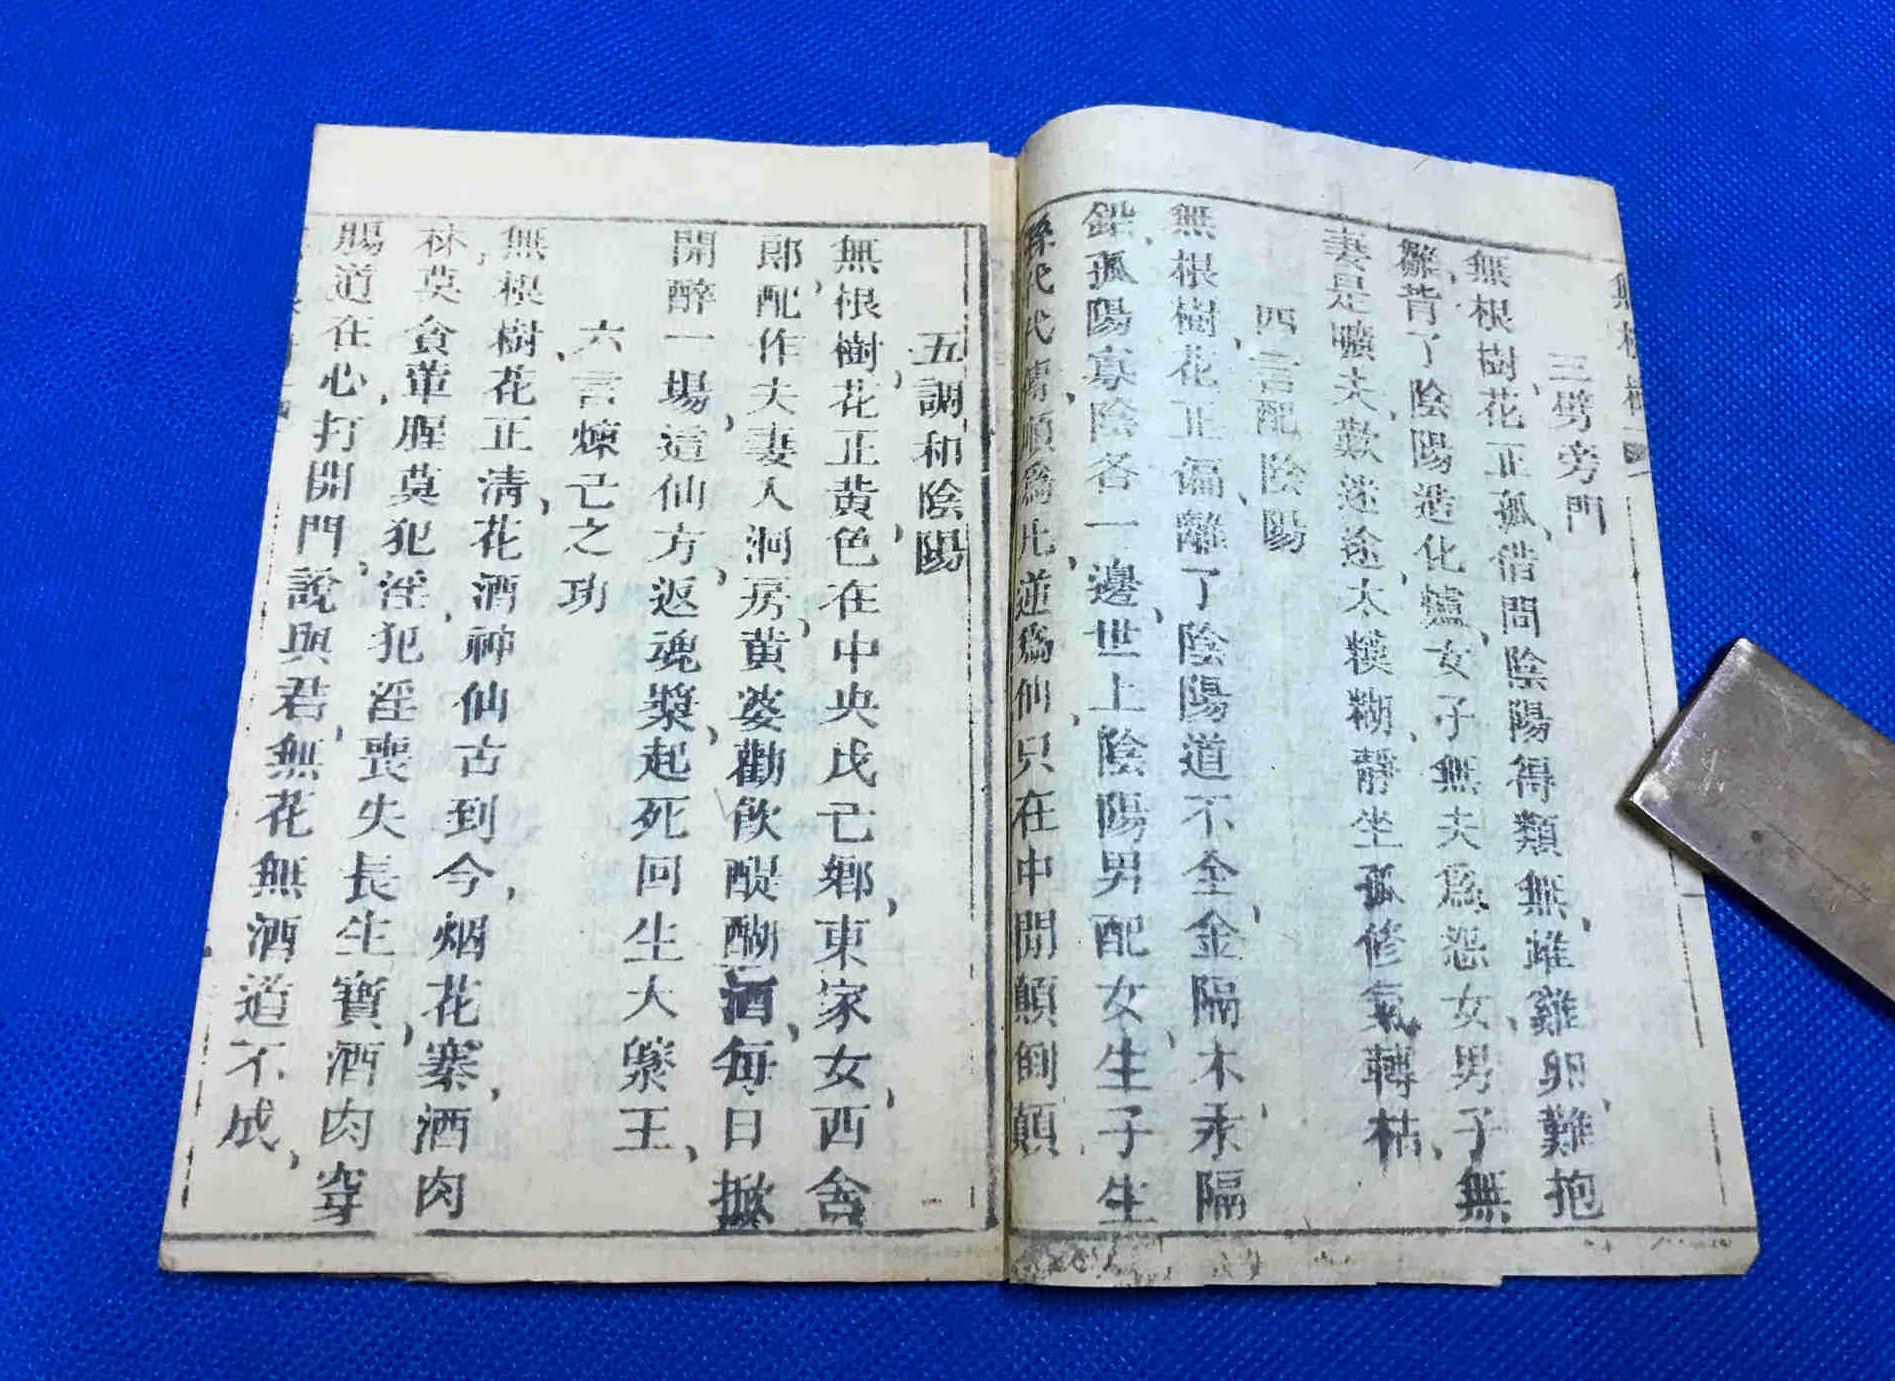 三劈旁門
無根樹、花正孤、借問陰陽得類無、雌雞卵、難抱
雛、背了陰陽造化爐、女子無夫爲怨女、男子無
妻是曠夫、歎迷途、太糢糊、靜坐孤修氣轉枯、
四言配陰陽
無根樹、花正偏、離了陰陽道不全、金隔木、汞隔
鉛、孤陽寡陰各一邊、世上陰陽男配女、生子生
孫代代傳、順爲凡、逆爲仙、只在中間顛倒顛
五調和陰陽
無根樹、花正黄、色在中央戊己鄉、東家女、西舍
郎、配作夫妻入洞房、黄婆勸飲醍醐酒、每日掀
開醉一場、這仙方、返魂漿、起死回生大藥王、
六言煉己之功
無根樹、花正清、花酒神仙古到今、烟花寨、酒肉
林、莫貪葷腥莫犯淫、犯淫喪失長生寶、酒肉穿
腸道在心、打開門、說與君、無花無酒道不成、
無根樹